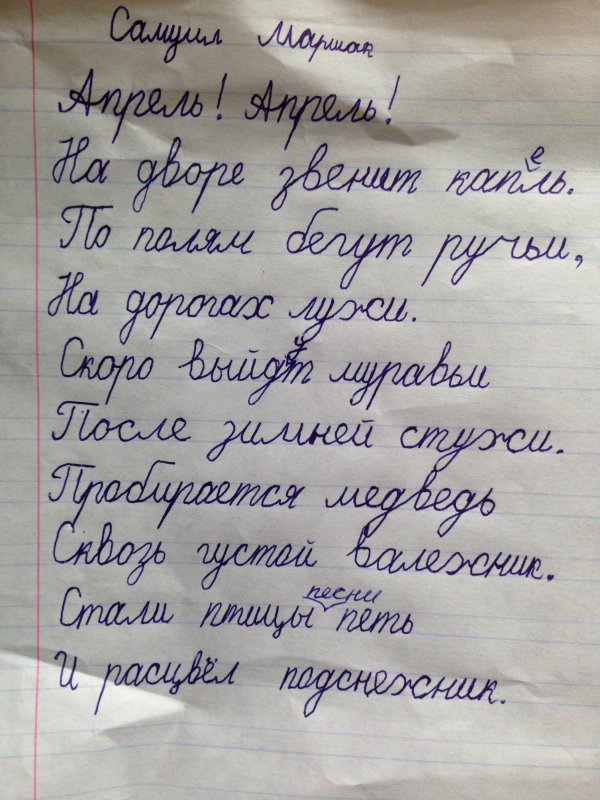 Самуил Маршак
Апрель! Апрель!
На дворе звенит капель.
По полям бегут ручьи,
На дорогах лужи.
Скоро выйдут муравьи
После зимней стужи.
Пробирается медведь
Сквозь густой валежник.
Стали птицы песни петь
И расцвёл подснежник.